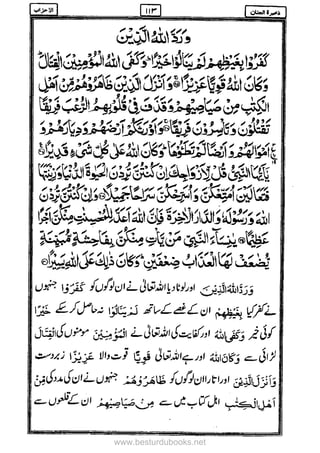 الاحزاب ۱۱۳ ذخیرۃ الجنان
وَرَدَّ اللّٰهُ الَّذِیْنَ
كَفَرُوْا بِغَیْظِهِمْ لَمْ یَنَالُوْا خَیْرًا ؕ وَكَفَی اللّٰهُ الْمُؤْمِنِیْنَ الْقِتَالَ ؕ
وَكَانَ اللّٰهُ قَوِیًّا عَزِیْزًا ۚ وَاَنْزَلَ الَّذِیْنَ ظَاهَرُوْهُمْ مِّنْ اَهْلِ
الْكِتٰبِ مِنْ صَیَاصِیْهِمْ وَقَذَفَ فِیْ قُلُوْبِهِمُ الرُّعْبَ فَرِیْقًا
تَقْتُلُوْنَ وَتَاْسِرُوْنَ فَرِیْقًا ۚ وَاَوْرَثَكُمْ اَرْضَهُمْ وَدِیَارَهُمْ وَ
اَمْوَالَهُمْ وَاَرْضًا لَّمْ تَطَـُٔوْهَا ؕ وَكَانَ اللّٰهُ عَلٰی كُلِّ شَیْءٍ قَدِیْرًا ۠
یٰۤاَیُّهَا النَّبِیُّ قُلْ لِّاَزْوَاجِكَ اِنْ كُنْتُنَّ تُرِدْنَ الْحَیٰوةَ الدُّنْیَا وَزِیْنَتَهَا
فَتَعَالَیْنَ اُمَتِّعْكُنَّ وَاُسَرِّحْكُنَّ سَرَاحًا جَمِیْلًا وَاِنْ كُنْتُنَّ تُرِدْنَ
اللّٰهَ وَرَسُوْلَهٗ وَالدَّارَ الْاٰخِرَةَ فَاِنَّ اللّٰهَ اَعَدَّ لِلْمُحْسِنٰتِ مِنْكُنَّ اَجْرًا
عَظِیْمًا یٰنِسَآءَ النَّبِیِّ مَنْ یَّاْتِ مِنْكُنَّ بِفَاحِشَةٍ مُّبَیِّنَةٍ
یُّضٰعَفْ لَهَا الْعَذَابُ ضِعْفَیْنِ ؕ وَكَانَ ذٰلِكَ عَلَی اللّٰهِ یَسِیْرًا
وَرَدَّ اللّٰهُ الَّذِیْنَ اور لوٹا دیا اللہ تعالیٰ نے ان لوگوں کو كَفَرُوْا جنہوں
نے کفر کیا بِغَیْظِهِمْ ان کے غصے کے ساتھ لَمْ یَنَالُوْا نہ حاصل کر سکے خَیْرًا
کوئی خیر وَكَفَی اللّٰهُ اور کفایت کی اللہ تعالیٰ نے الْمُؤْمِنِیْنَ مومنوں کی الْقِتَالَ
لڑائی سے وَكَانَ اللّٰهُ اور ہے اللہ تعالیٰ قَوِیًّا قوت والا عَزِیْزًا زبردست
وَاَنْزَلَ الَّذِیْنَ اور اتارا ان لوگوں کو ظَاهَرُوْهُمْ جنہوں نے ان کی مدد کی مِّنْ
اَهْلِ الْكِتٰبِ اہل کتاب میں سے مِنْ صَیَاصِیْهِمْ ان کے قلعوں سے
www.besturdubooks.net